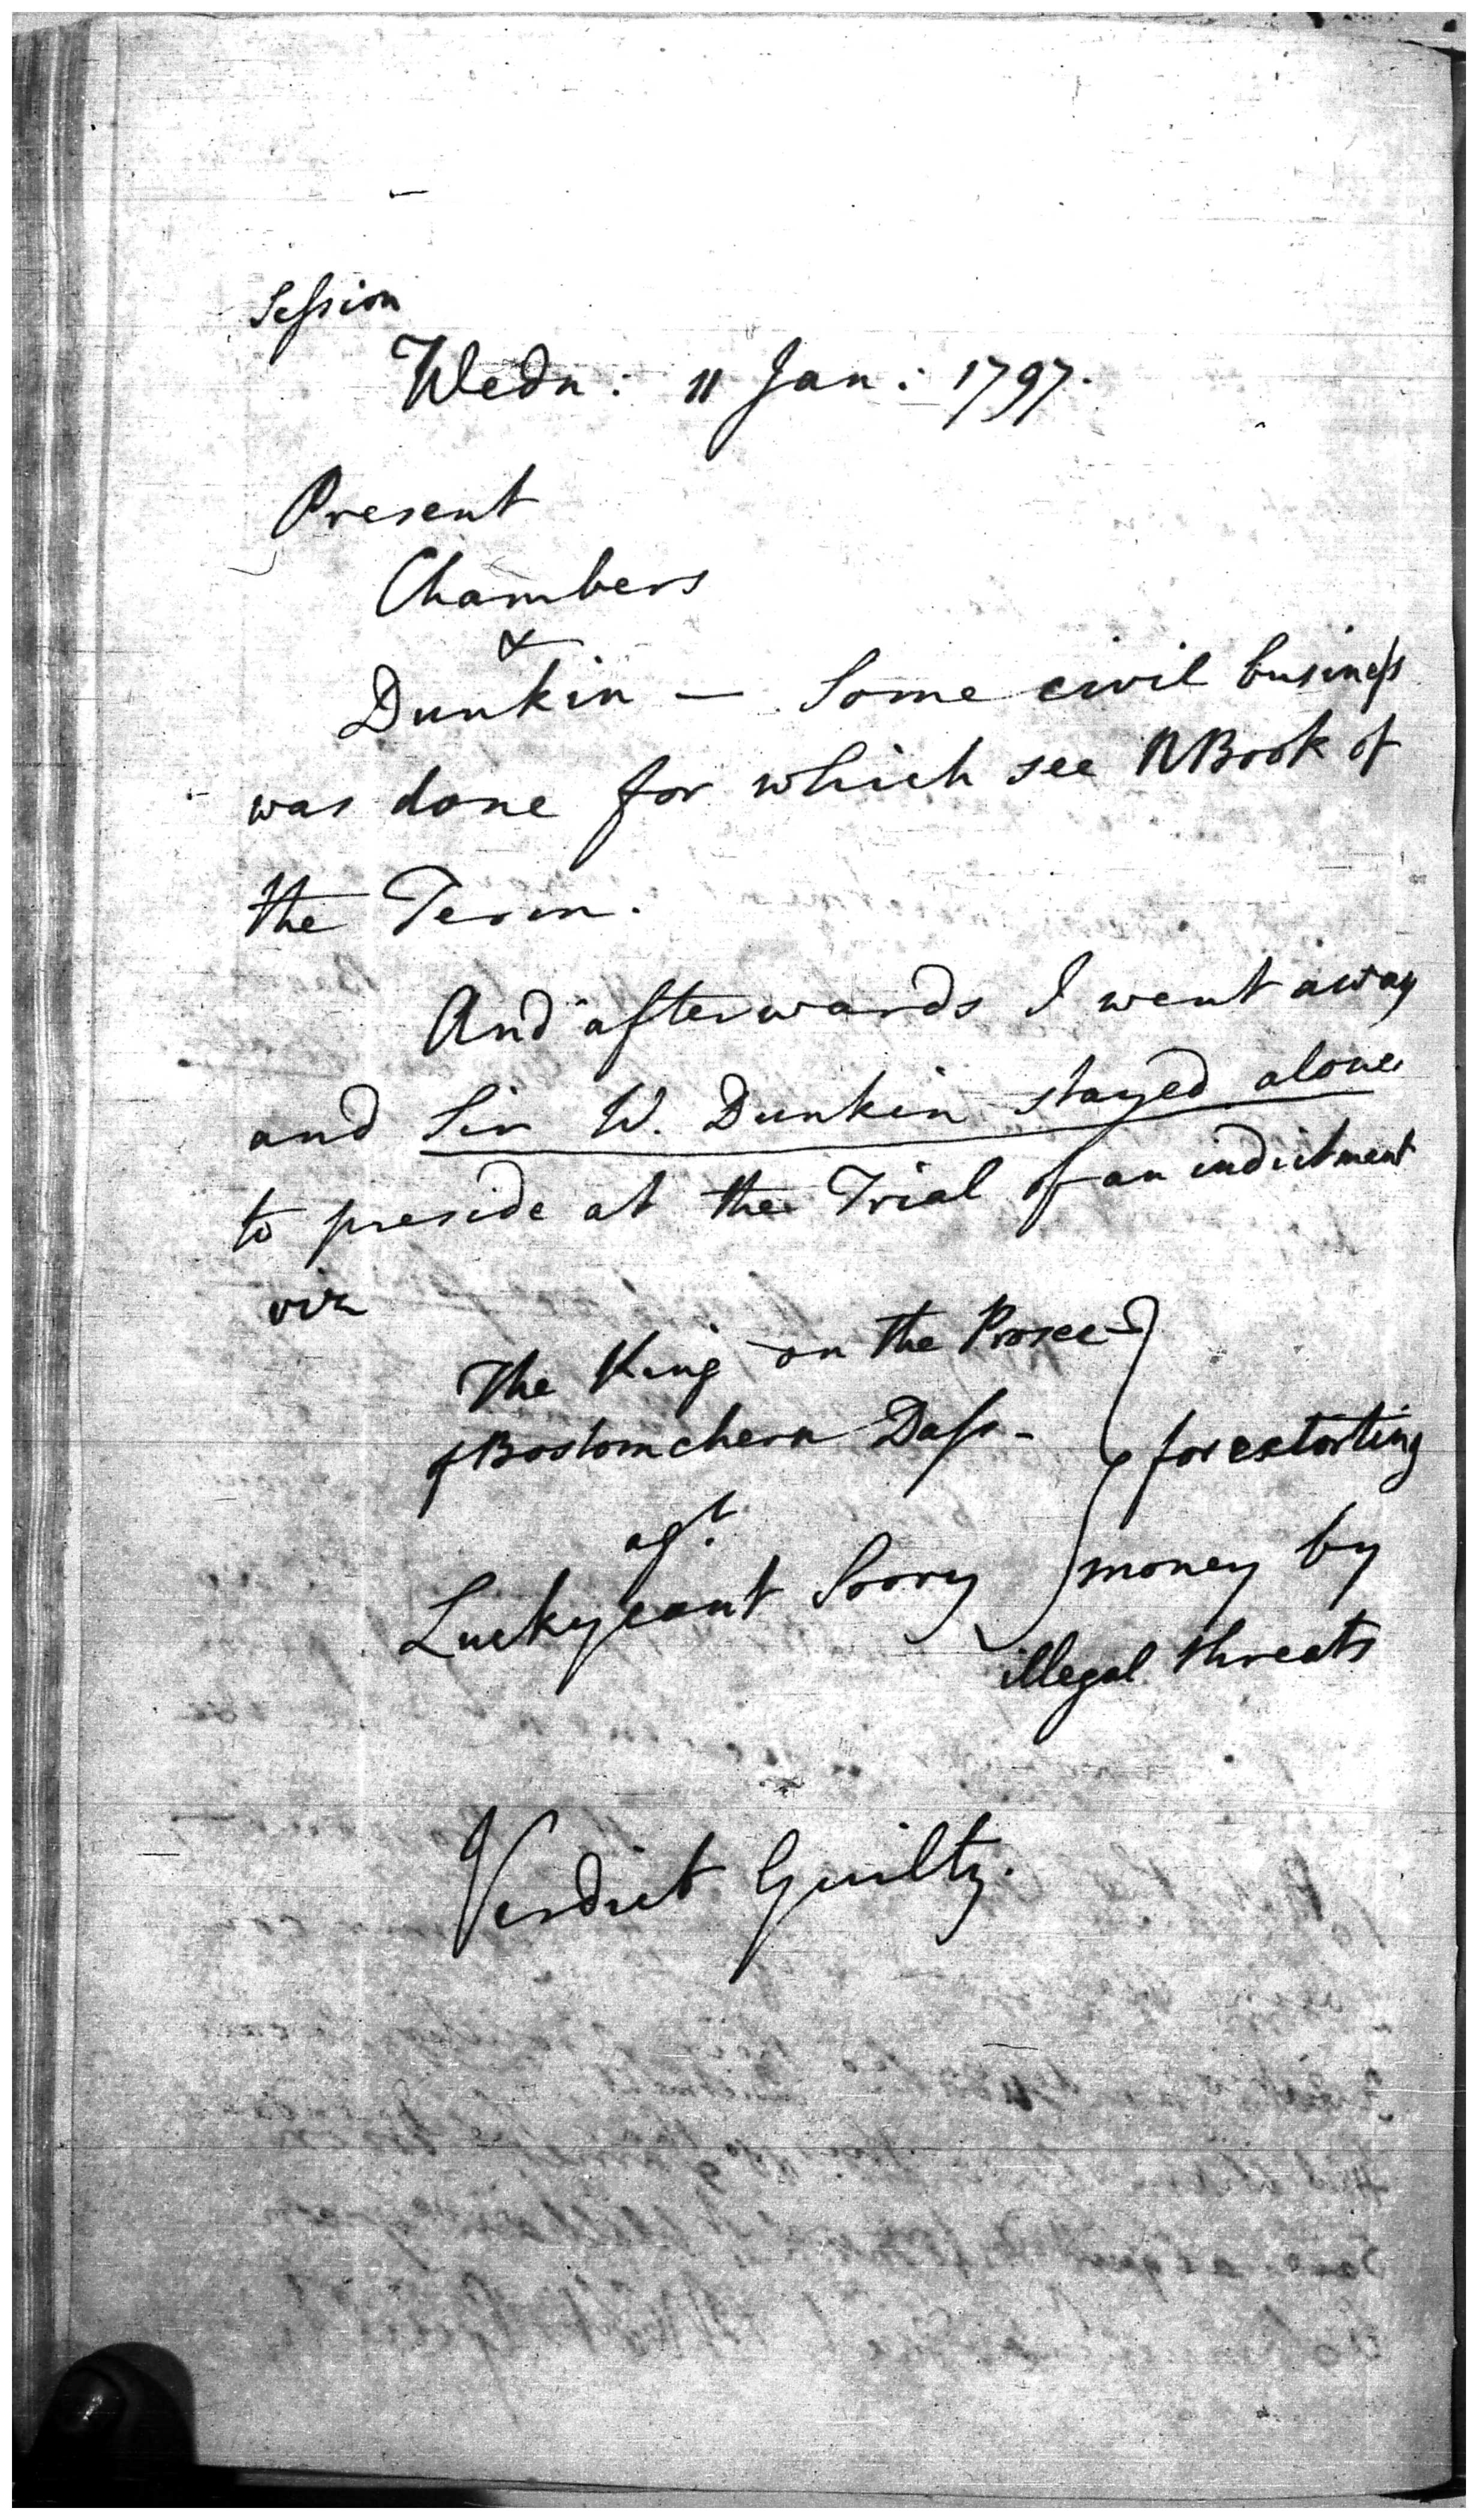 Session
Wedn: 11 Jan: 1797.
Present
Chambers
&
Dunkin — Some civil business
was done for which see NBook of
the Term.
And afterwards I went away
and Sir W. Dunkin stayed alone
to preside at the Trial of an indictment
viz
The King on the Prosec
of Bostomchern Dass -
agt.
Luckycaunt Sorry
for extorting
money by
illegal threats
Verdict Guilty.